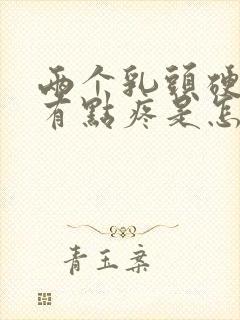 兩个乳頭硬
有點疼是怎
青玉案